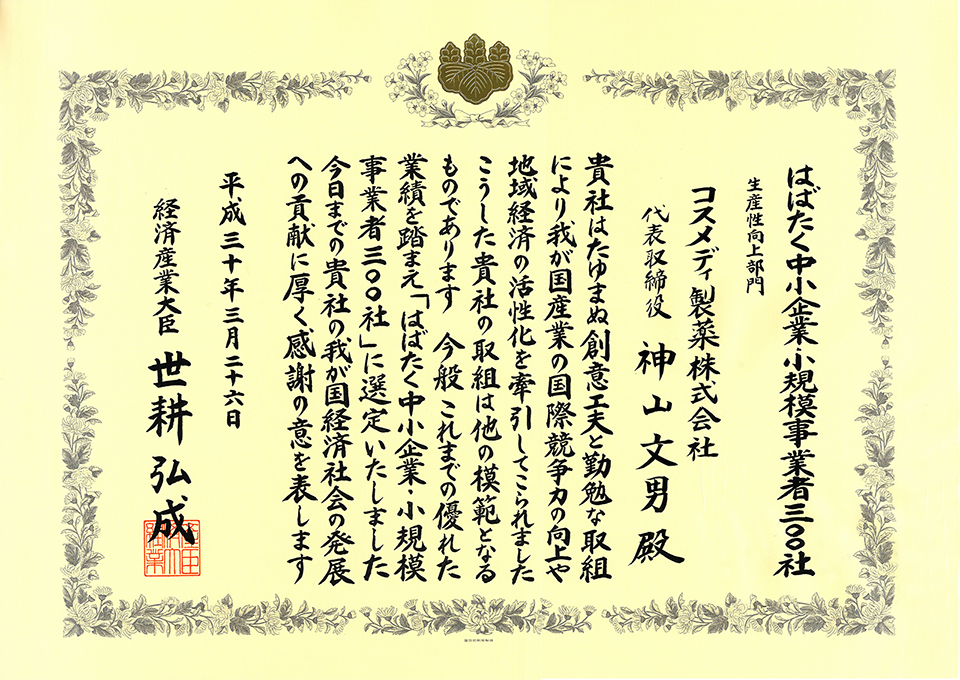 はばたく中小企業・小規模事業者三〇〇社
生産性向上部門
コスメディ製薬株式会社
代表取締役 神山文男殿
貴社はたゆまぬ創意工夫と勤勉な取組
により我が国産業の国際競争力の向上や
地域経済の活性化を牽引してこられました
こうした貴社の取組は他の模範となる
ものであります 今般これまでの優れた
業績を踏まえ「はばたく中小企業・小規模
事業者三〇〇社」に選定いたしました
今日までの貴社の我が国経済社会の発展
への貢献に厚く感謝の意を表します
平成三十年三月二十六日
経済産業大臣 世耕弘成